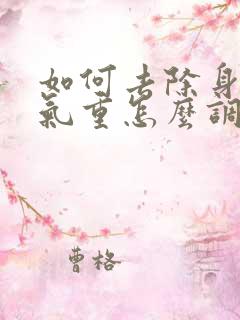 如何去除身
氣重怎麼調
曹格